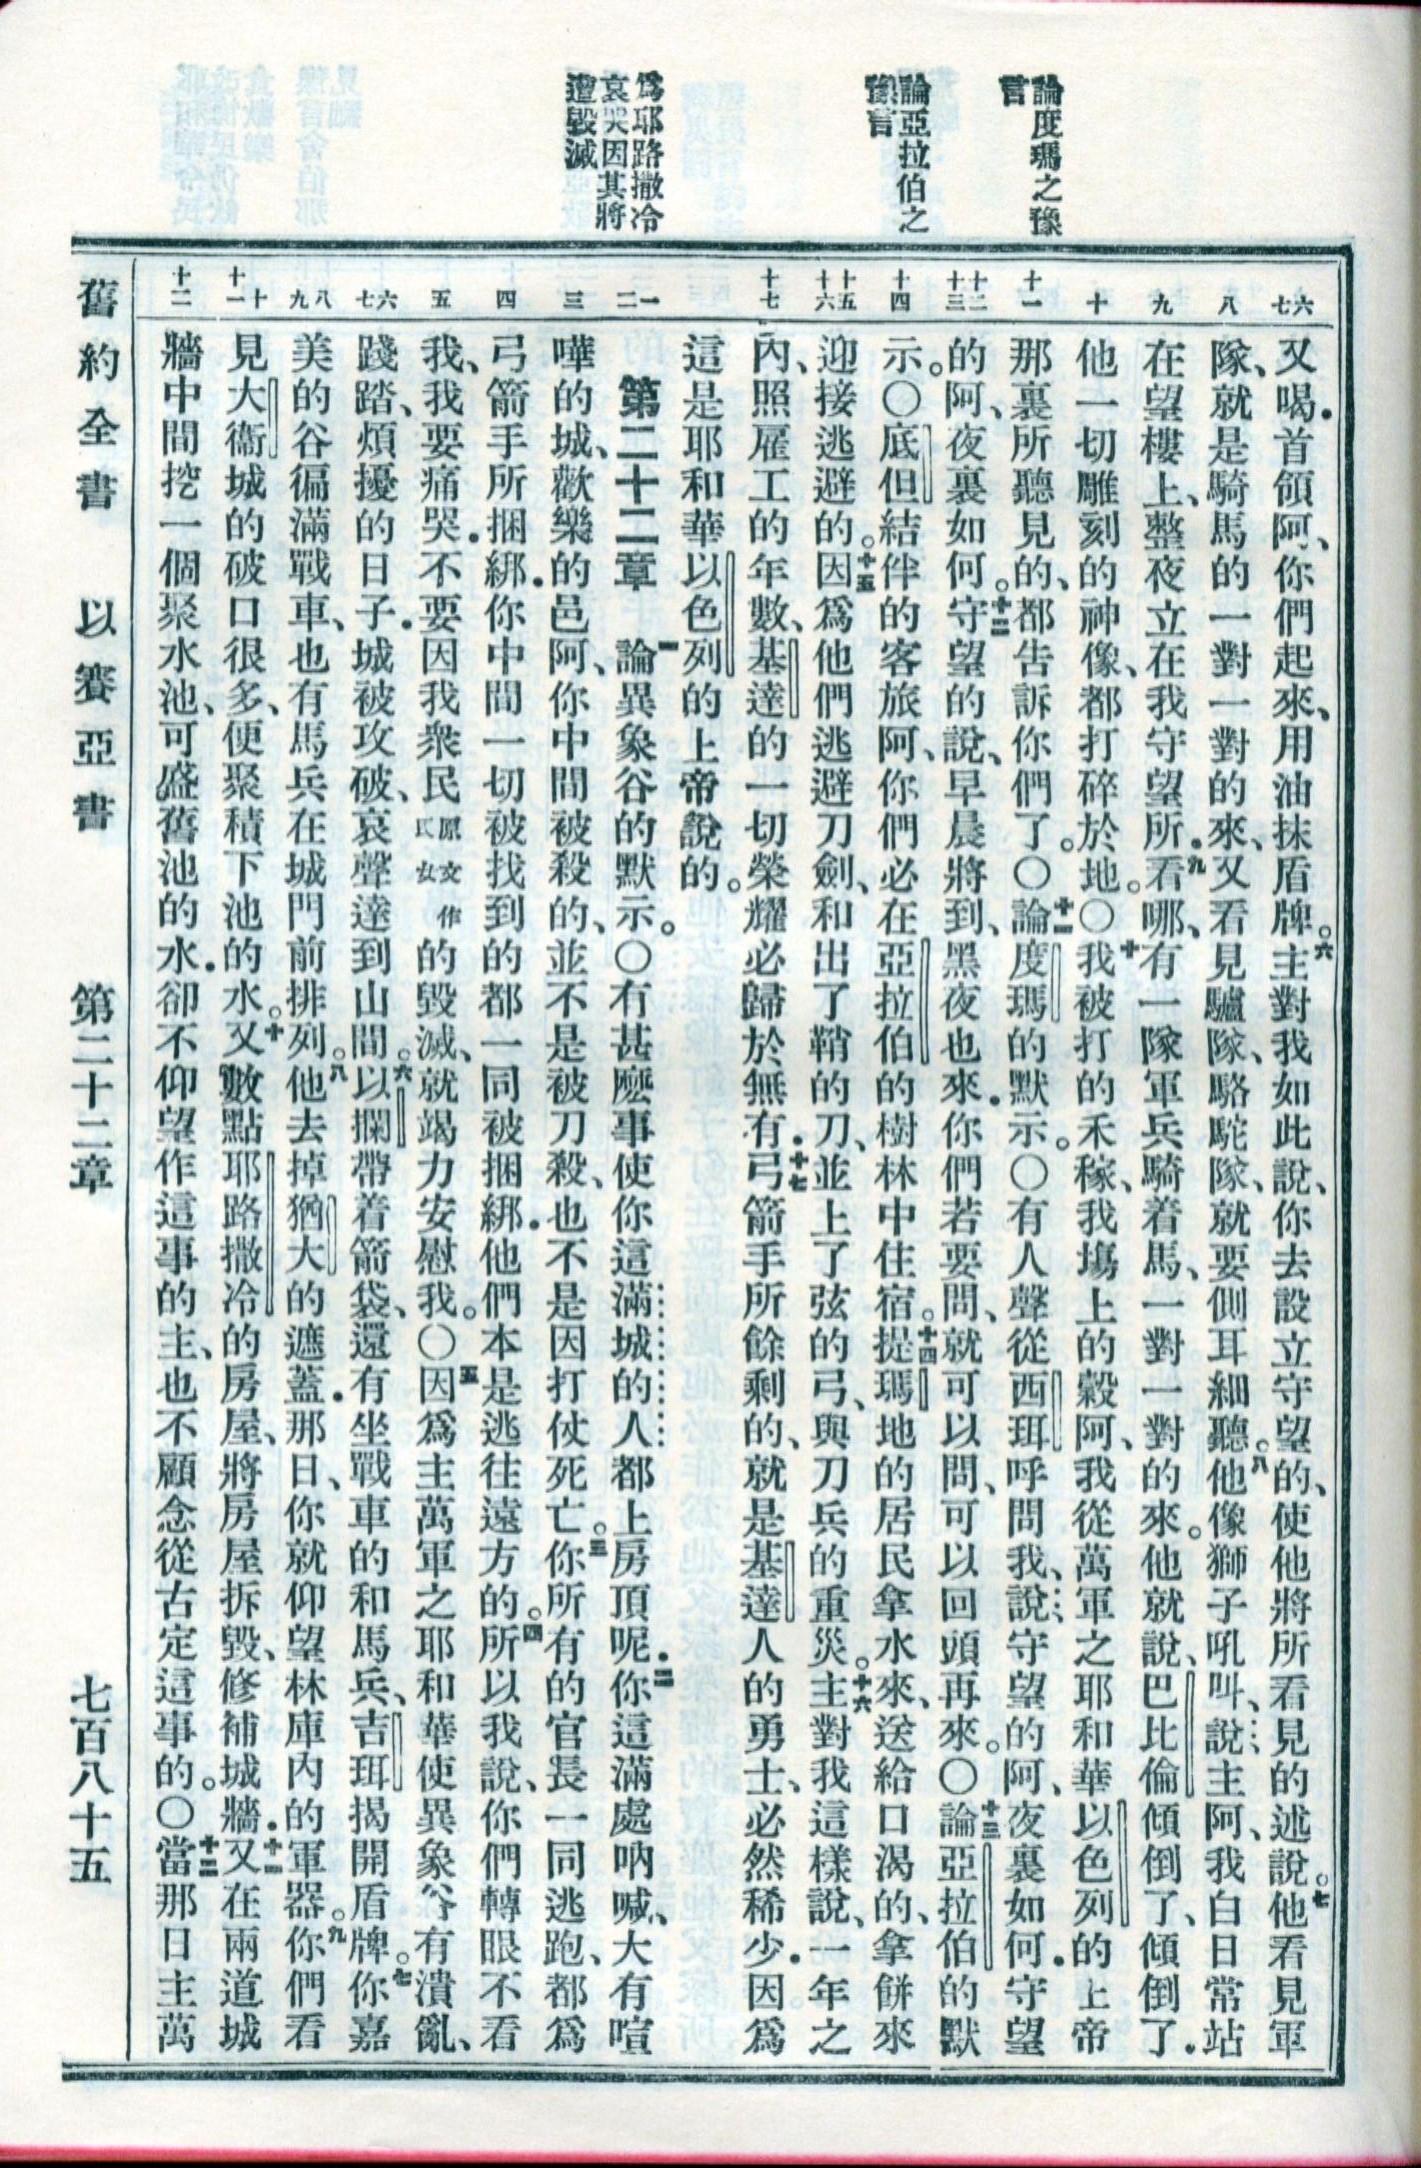 論度瑪之豫
言
論亞拉伯之
豫言
爲耶路撒冷
哀哭因其將
遭毀滅
六
七
八
九
十
十一
十二
十三
十四
十五
十六
十七
一
二
三
四
五
六
七
八
九
十
十一
十二
又喝．首領阿、你們起來、用油抹盾牌。六主對我如此說、你去設立守望的、使他將所看見的述說。七他看見軍
隊、就是騎馬的一對一對的來、又看見驢隊、駱駝隊、就要側耳細聽。八他像獅子吼叫、說主阿、我白日常站
在望樓上、整夜立在我守望所．九看哪、有一隊軍兵騎着馬、一對一對的來。他就說、巴比倫傾倒了、傾倒了．
他一切雕刻的神像、都打碎於地。〇十我被打的禾稼、我塲上的穀阿、我從萬軍之耶和華以色列的上帝
那裏所聽見的、都告訴你們了。〇十一論度瑪的默示。〇有人聲從西珥呼問我、說守望的阿、夜裏如何．守望
的阿、夜裏如何。十二守望的說、早晨將到、黑夜也來．你們若要問、就可以問、可以回頭再來。〇十三論亞拉伯的默
示。〇底但結伴的客旅阿、你們必在亞拉伯的樹林中住宿。十四提瑪地的居民拿水來、送給口渴的、拿餅來
迎接逃避的。十五因爲他們逃避刀劍、和出了鞘的刀、並上了弦的弓、與刀兵的重災。十六主對我這樣說、一年之
內、照雇工的年數、基達的一切榮耀必歸於無有．十七弓箭手所餘剩的、就是基達人的勇士、必然稀少．因爲
這是耶和華以色列的上帝說的。
第二十二章　一論異象谷的默示。〇有甚麼事使你這滿城的人都上房頂呢．二你這滿處吶喊、大有喧
嘩的城、歡樂的邑阿、你中間被殺的、並不是被刀殺、也不是因打仗死亡。三你所有的官長一同逃跑、都爲
弓箭手所捆綁．你中間一切被找到的都一同被捆綁．他們本是逃往遠方的。四所以我說、你們轉眼不看
我、我要痛哭．不要因我衆民原文作民女的毀滅、就竭力安慰我。〇五因爲主萬軍之耶和華使異象谷有潰亂、
踐踏、煩擾的日子．城被攻破、哀聲達到山間。六以攔帶着箭袋、還有坐戰車的和馬兵、吉珥揭開盾牌。七你嘉
美的谷徧滿戰車、也有馬兵在城門前排列。八他去掉猶大的遮蓋．那日、你就仰望林庫內的軍器。九你們看
見大衞城的破口很多、便聚積下池的水。十又數點耶路撒冷的房屋、將房屋拆毀、修補城牆．十一又在兩道城
牆中間挖一個聚水池、可盛舊池的水．卻不仰望作這事的主、也不顧念從古定這事的。〇十二當那日主萬
舊約全書　以賽亞書　第二十二章　七百八十五